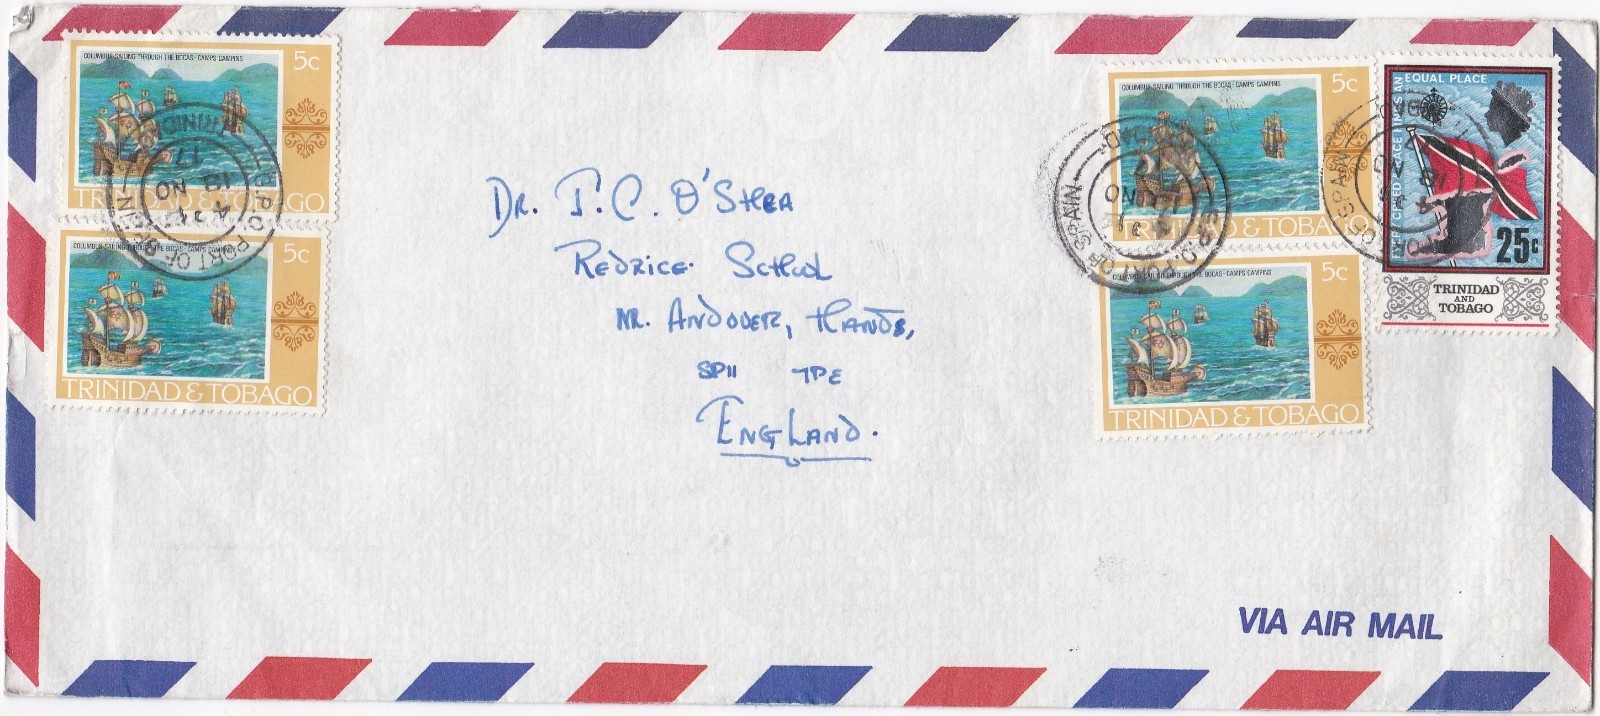 COLUMBUS SAILING THROUGH THE BOCAS-CAMPS CAMPINS
5c
TRINIDAD & TOBAGO
COLUMBUS SAILING THROUGH THE BOCAS-CAMPS CAMPINS
5c
TRINIDAD & TOBAGO
G.P.O. PORT OF SPAIN
TRINIDAD
18 NO
COLUMBUS SAILING THROUGH THE BOCAS-CAMPS CAMPINS
5c
TRINIDAD & TOBAGO
COLUMBUS SAILING THROUGH THE BOCAS-CAMPS CAMPINS
5c
TRINIDAD & TOBAGO
SPAIN
NO
EQUAL PLACE
25c
TRINIDAD
AND
TOBAGO
SPAIN
DR. J. C. O'SHEA
REDRICE SCHOOL
NR. ANDOVER, HANTS,
SP11 7PE
ENGLAND.
VIA AIR MAIL